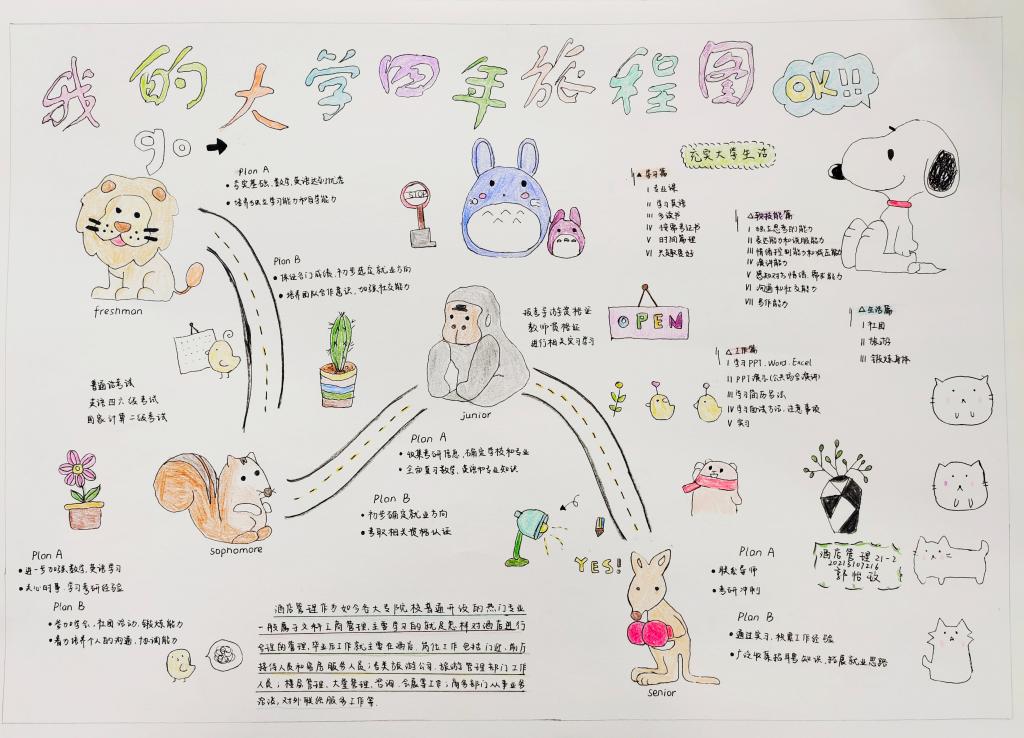 我的大学四年旅程图
OK!!!
go
Plan A
夯实基础，数学、英语达到优秀
培养独立学习能力和自学能力
Plan B
保证各门成绩，初步选定就业方向
培养团队合作意识，加强社交能力
freshman
STOP
充实大学生活
△学习篇
I 专业课
II 学习英语
III 多读书
IV 按需考证书
V 时间管理
VI 兴趣爱好
△软技能篇
I 独立思考的能力
II 表达能力和说服能力
III 情绪控制能力和适应能力
IV 演讲能力
V 感知对方情绪，
VI 沟通和社交能力
VII 写作能力
△生活篇
I 社团
II 旅游
III 锻炼身体
△工作篇
I 学习PPT、Word、Excel
II PPT演示(公共场合演讲)
III 学习简历写法
IV 学习面试方法、注意事项
V 实习
报考导游资格证
教师资格证
进行相关实习学习
OPEN
普通话考试
英语四六级考试
国家计算二级考试
junior
Plan A
收集考研信息，确定学校和专业
全面复习数学、英语和专业知识
Plan B
初步确定就业方向
考取相关资格认证
sophomore
Plan A
进一步加强数学、英语学习
关心时事，学习考研经验
Plan B
参加学会、社团活动、锻炼能力
着力培养个人的沟通、协调能力
YES!
酒店管理作为如今各大专院校普遍开设的热门专业
一般属于文科工商管理，主要学习的就是怎样对酒店进行
合理的管理，毕业后工作就主要在酒店，岗位工作包括门迎、前厅
接待人员和客房服务人员；各类旅游公司、旅游管理部门工作
人员；楼层管理、大堂管理、咨询、会展等工作；商务部门从事业务
洽谈，对外联络服务工作等.
senior
Plan A
联系导师
考研冲刺
Plan B
通过实习，积累工作经验
广泛收集招聘知识，拓展就业思路
酒店管理21-2
20215107216
郭怡玫